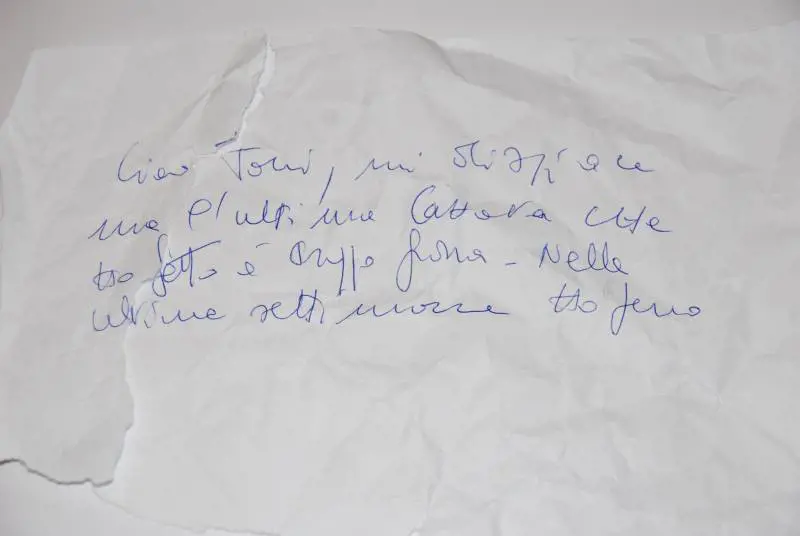 Ciao Toni, mi dispiace
ma l'ultima cazzata che
ho fatto é troppo grossa - Nelle
ultime settimane ho perso